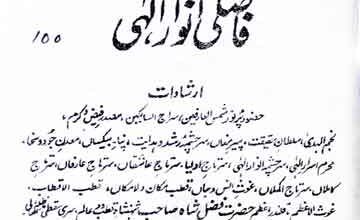 فاضلی انوار الٰہی
۱۰۰
ارشادات
حضور پرنور شمس العارفین، سراج السالکین، مصدر فیض و کرم،
نجم الہدیٰ، سلطان حقیقت، پیر مغاں، سرچشمہ رشد و ہدایت، بے کساں، معدن جود و سخا،
محرم اسرار الٰہی، سرچشمہ انوار الٰہی، سرتاج اولیا، سرتاج عاشقاں، سرتاج عارفاں، سرتاج
کاملاں، سرتاج اکملاں، غوث انس و جاں، قطب مکاں و لامکاں، قطب الاقطاب،
حضرت فضل شاہ صاحب